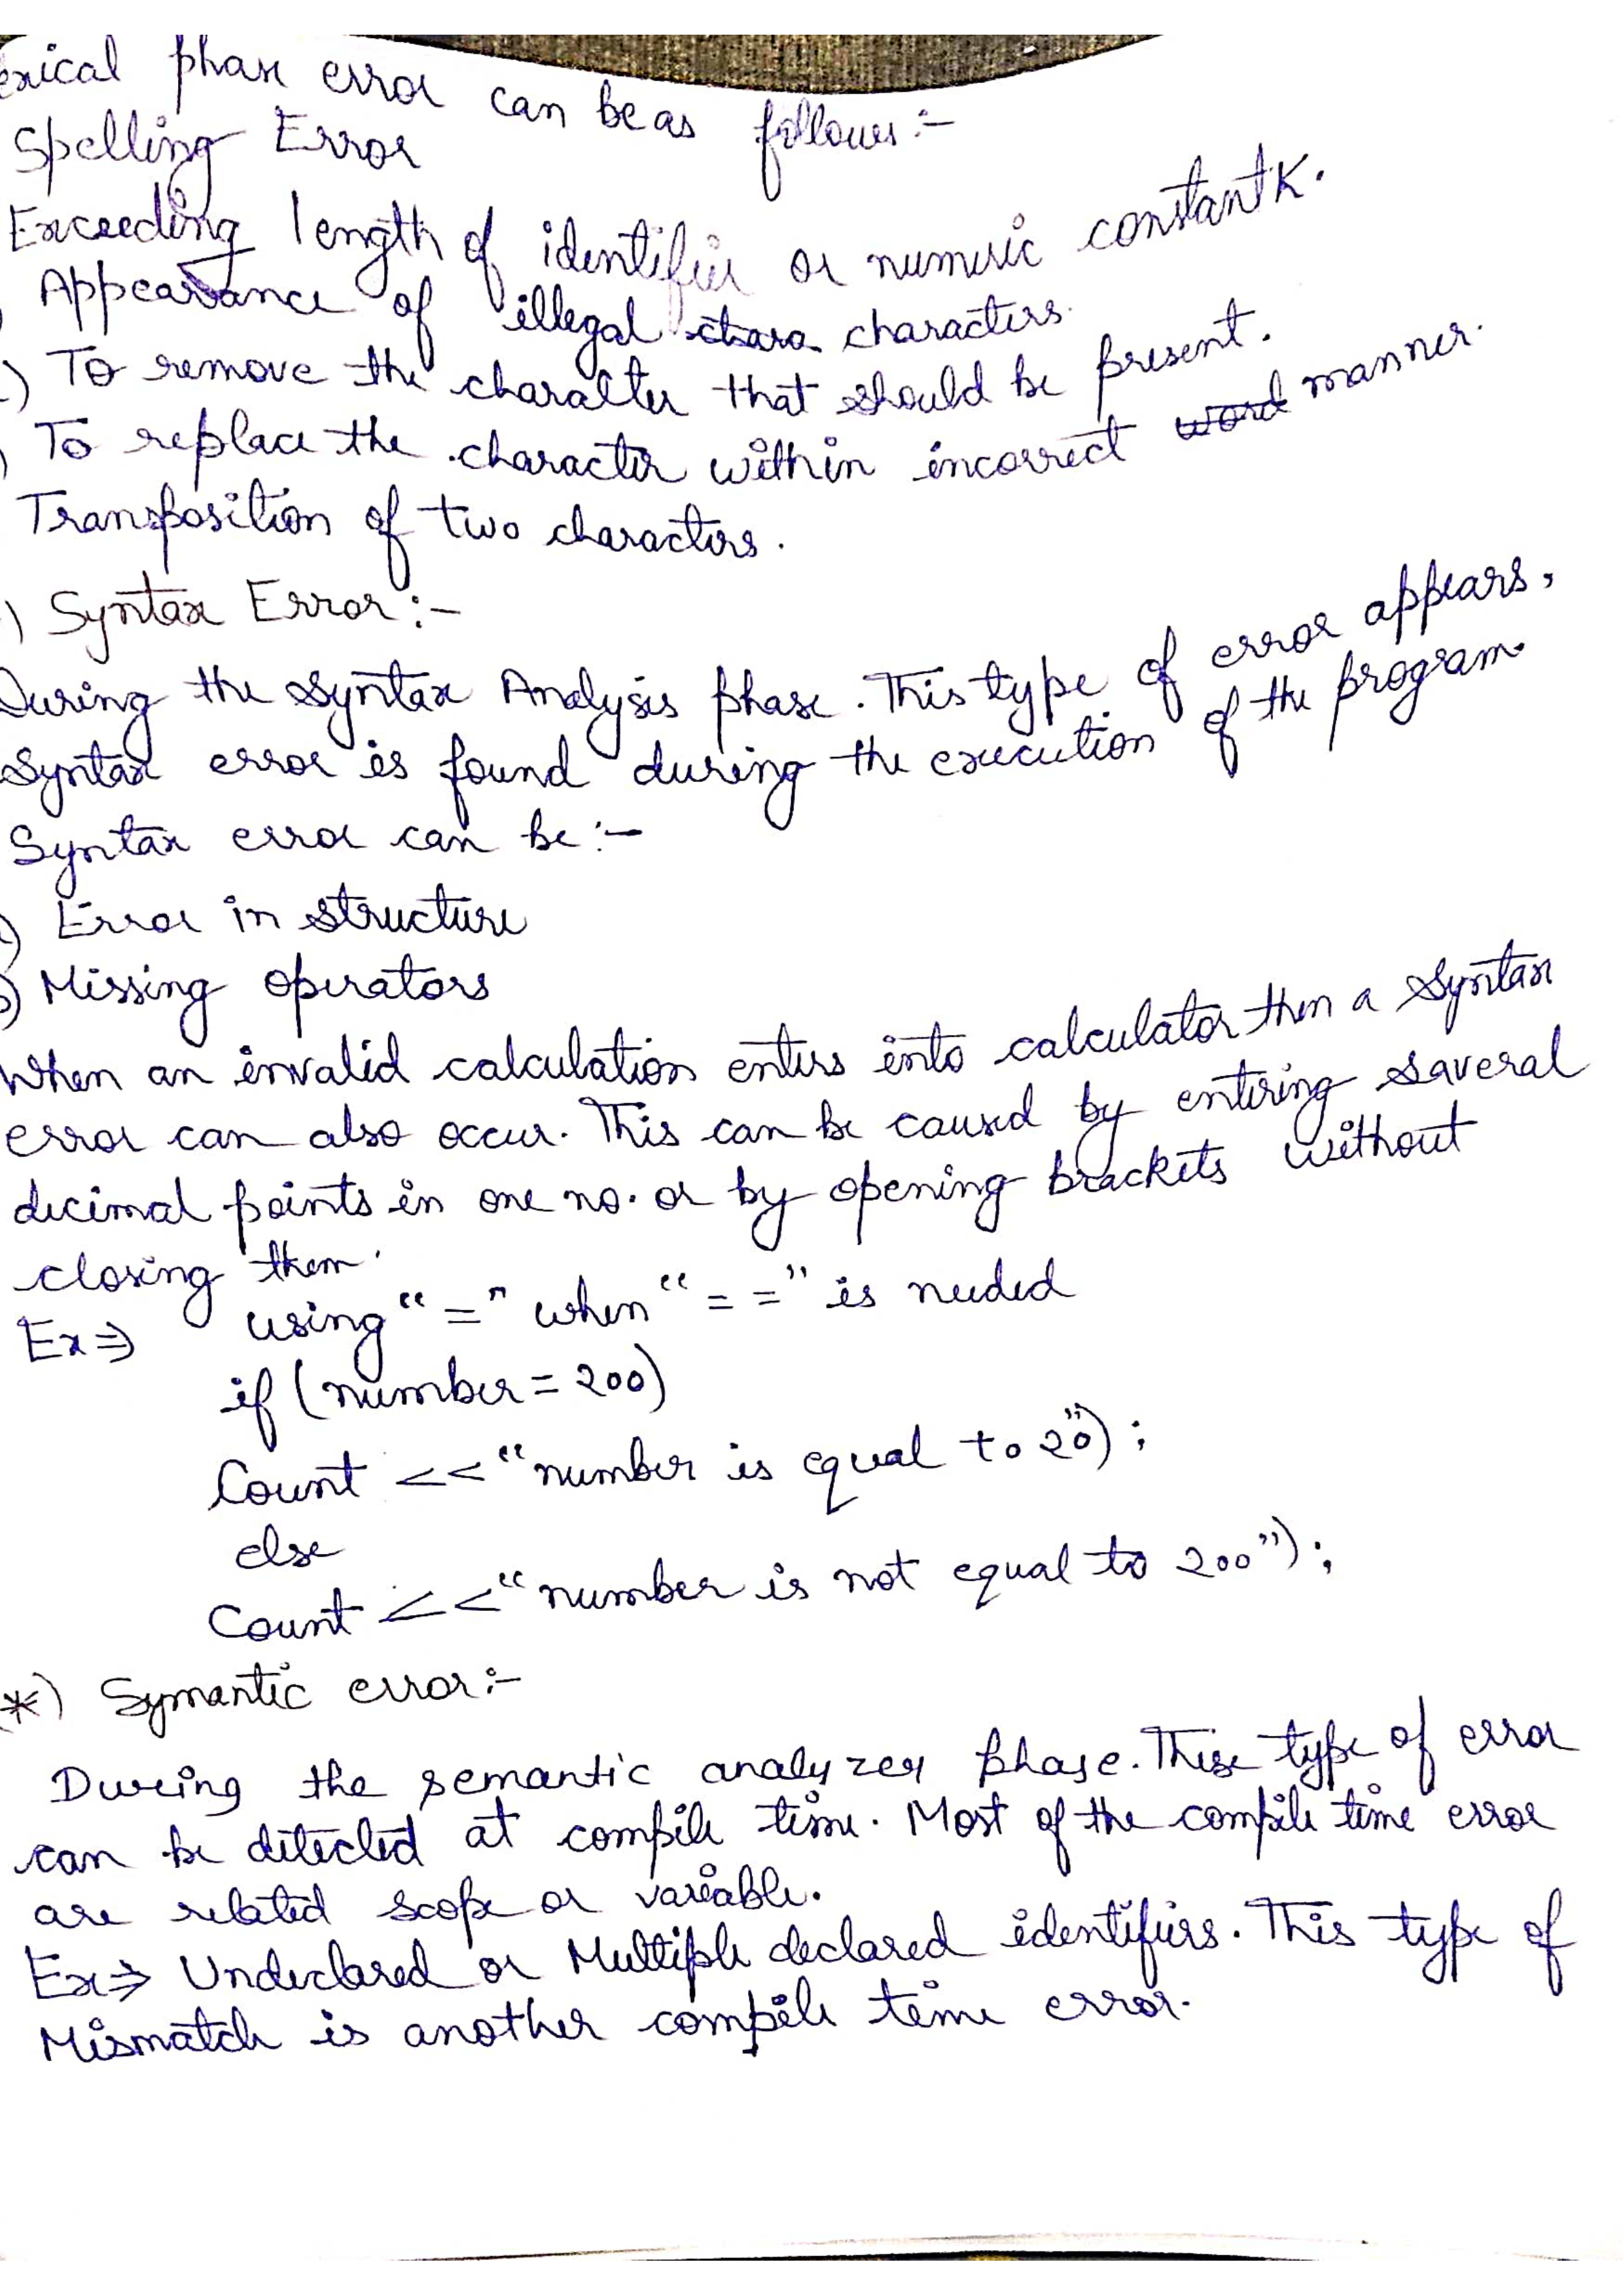 exical phase error can be as follows :-
Spelling Error
Exceeding length of identifier or numeric constantk.
Appearance of illegal chara characters.
) To remove the character that should be present.
) To replace the character within incorrect word manner.
Transposition of two characters.
) Syntax Error :-
During the syntax Analysis phase. This type of error appears,
Syntax error is found during the execution of the program
Syntax error can be :-
) Error in structure
) Missing operators
When an invalid calculation enters into calculator then a syntax
error can also occur. This can be caused by entering saveral
decimal points in one no. or by opening brackets without
closing them.
Ex⇒ using "=" when "= =" is needed
if (number = 200)
Count << "number is equal to 20");
else
Count << "number is not equal to 200");
*) Symantic error :-
During the semantic analyzer phase. These type of error
can be detected at compile time. Most of the compile time error
are related scope or variable.
Ex⇒ Undeclared or Multiple declared identifiers. This type of
Mismatch is another compile time error.